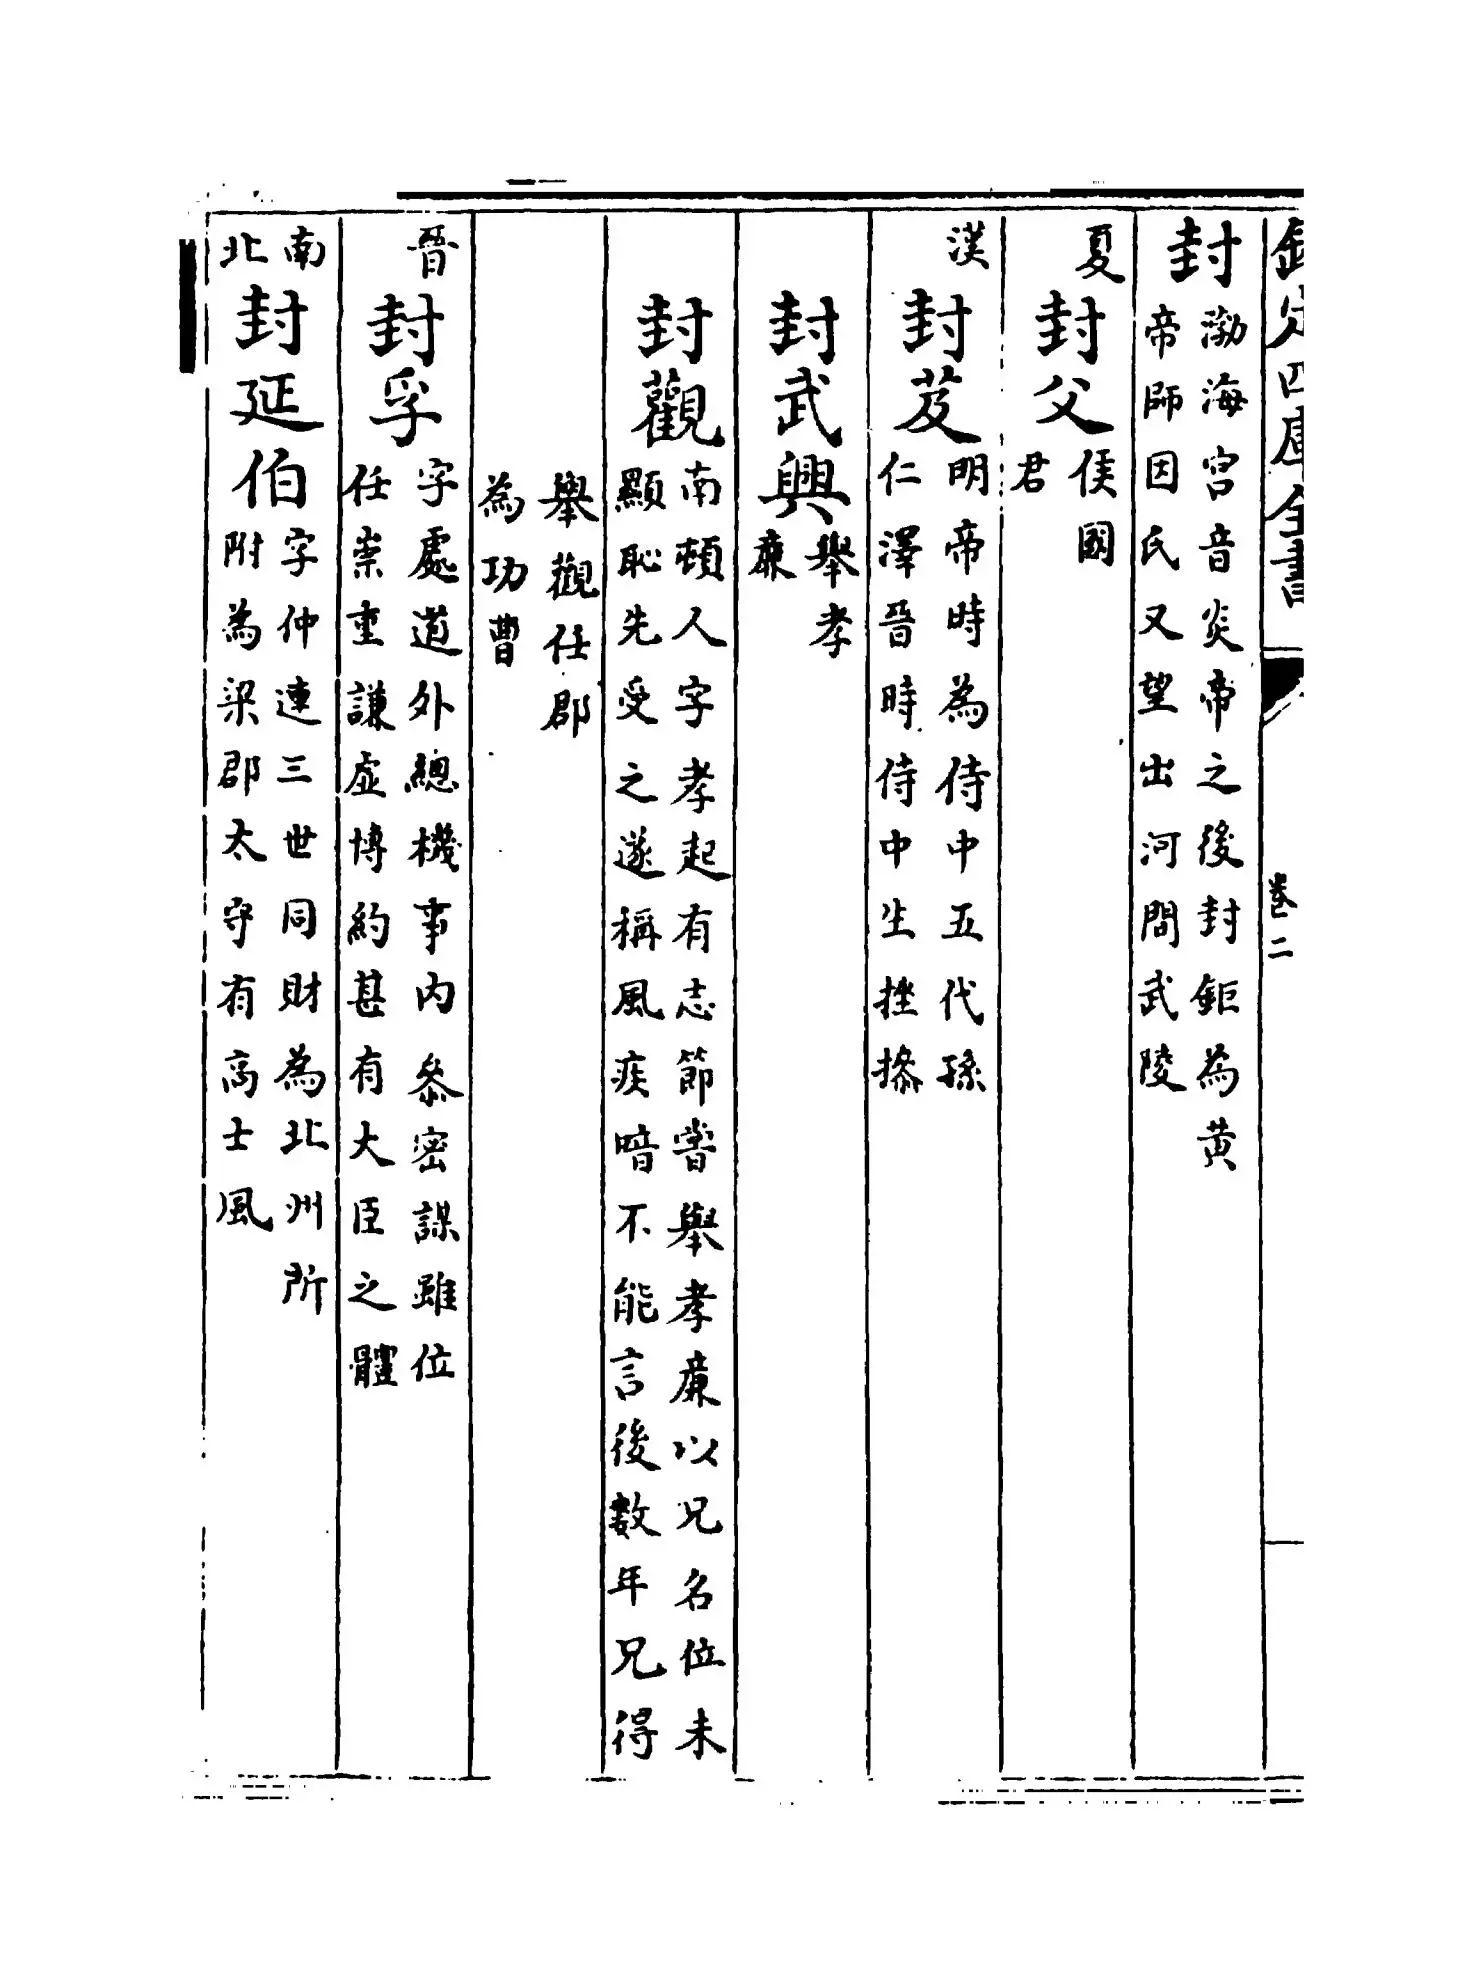 欽定四庫全書
卷二
封
渤海宮音炎帝之後封鉅為黄
帝師因氏又望出河間武陵
夏
封父
侯國
君
漢
封芨
明帝時為侍中五代孫
仁澤晉時侍中生挫搽
封武興
舉孝
亷
封觀
南頓人字孝起有志節嘗舉孝亷以兄名位未
顯恥先受之遂稱風疾喑不能言後數年兄得
舉觀任郡
為功曹
晉
封孚
字處道外總機事内叅密謀雖位
任崇重謙虚博約甚有大臣之體
南
北
封延伯
字仲連三世同財為北州所
附為梁郡太守有高士風